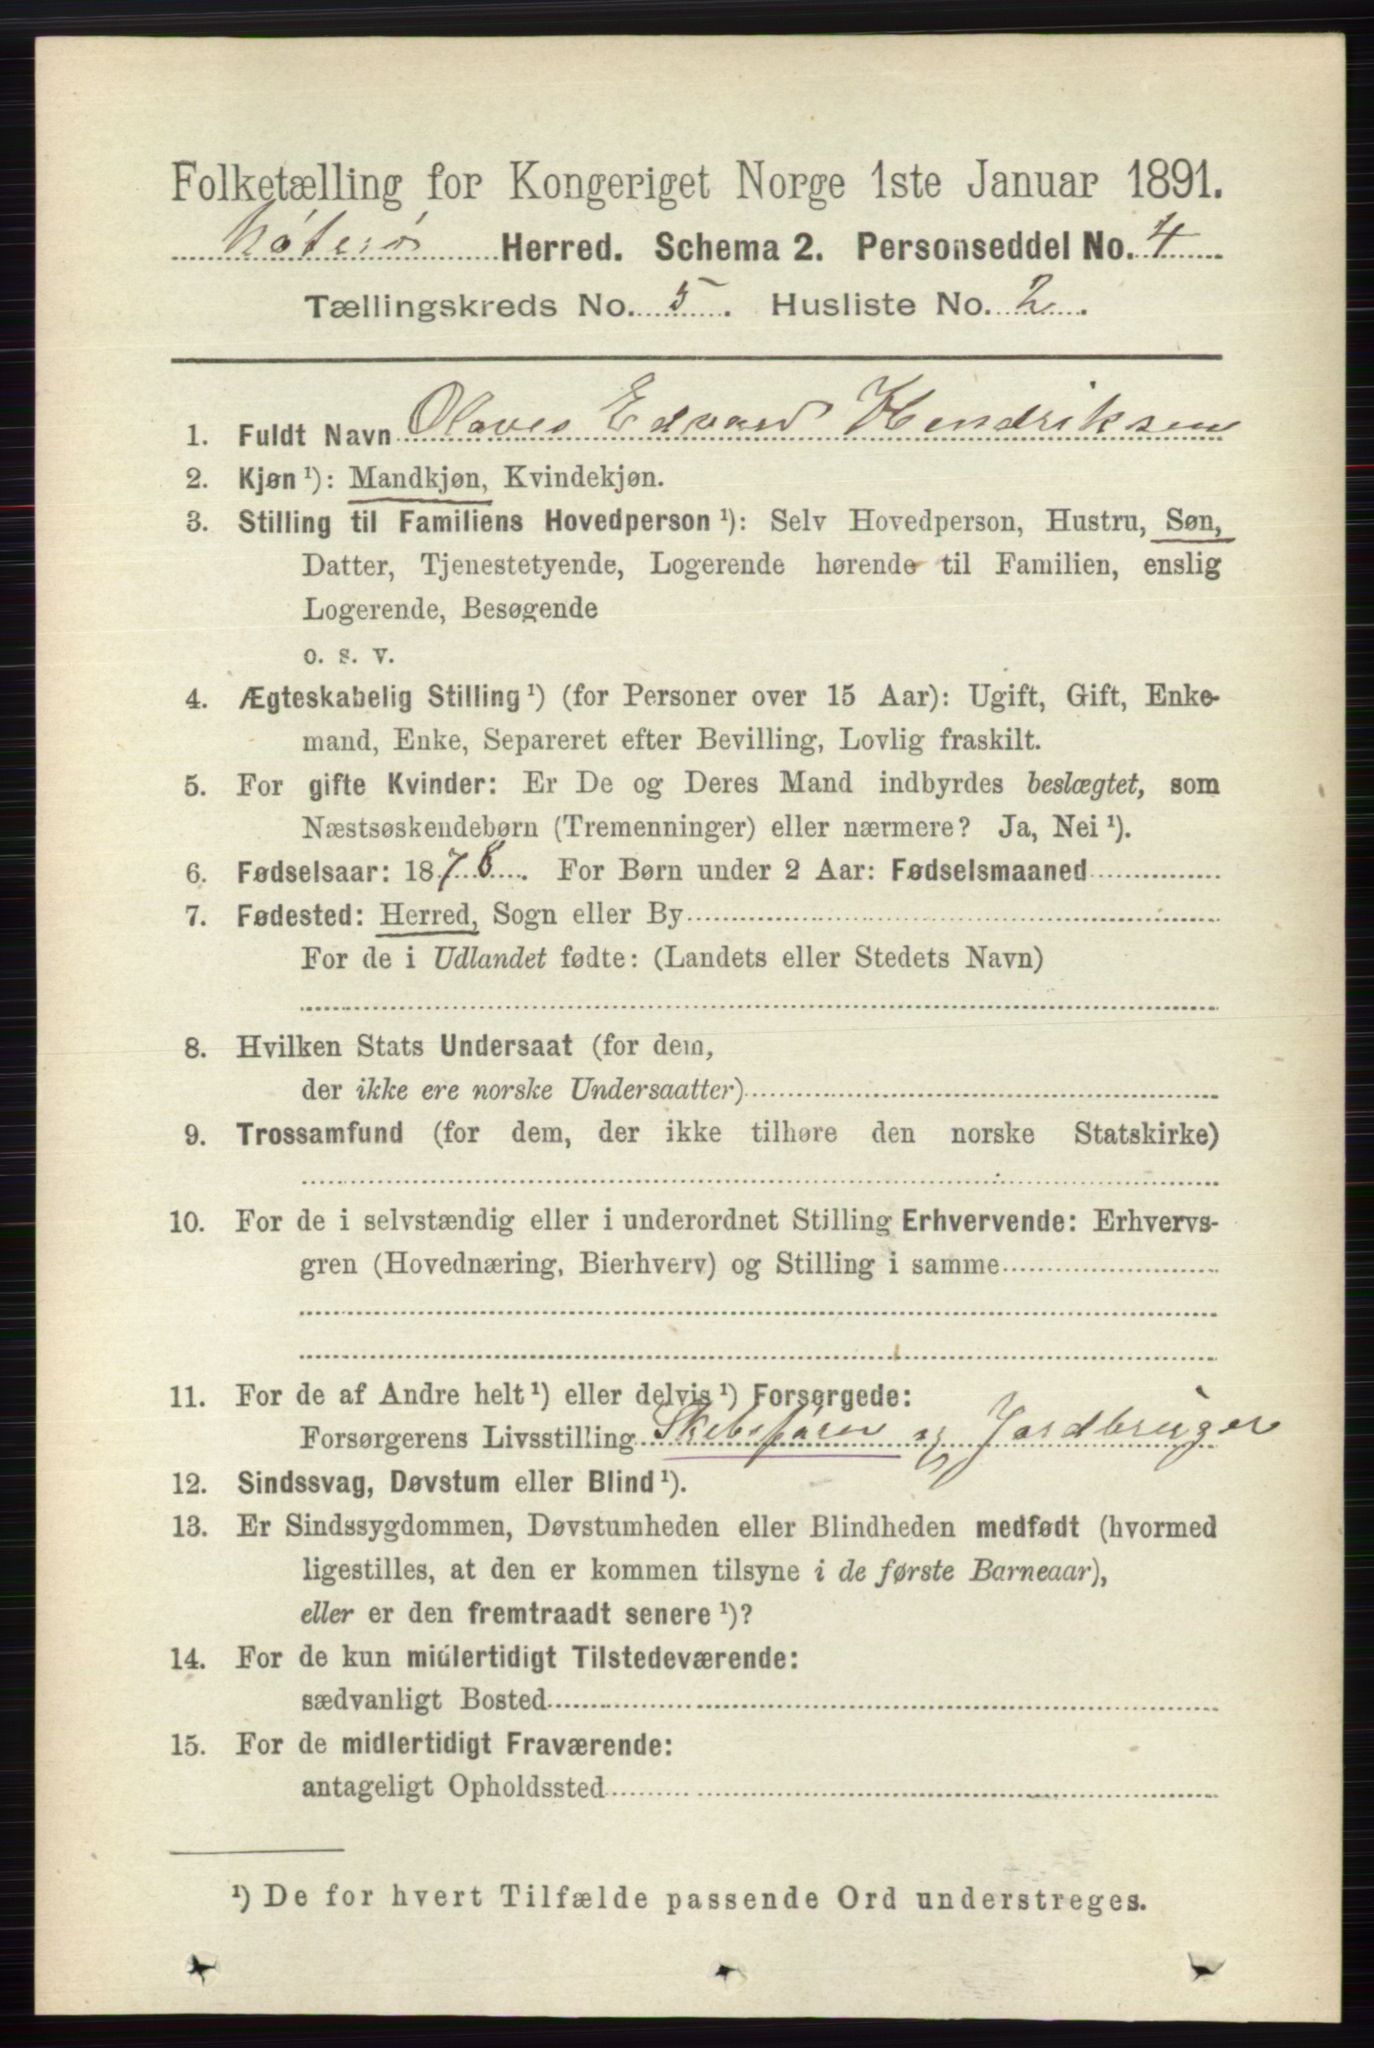 Folketælling for Kongeriget Norge 1ste Januar 1891.
Nøterø Herred. Schema 2. Personseddel No. 4
Tællingskreds No. 5. Husliste No. 2.
1. Fuldt Navn Olaves Edvard Hendriksen
2. Kjøn ¹): Mandkjøn, Kvindekjøn.
3. Stilling til Familiens Hovedperson ¹): Selv Hovedperson, Hustru, Søn,
Datter, Tjenestetyende, Logerende hørende til Familien, enslig
Logerende, Besøgende
o. s. v.
4. Ægteskabelig Stilling ¹) (for Personer over 15 Aar): Ugift, Gift, Enke-
mand, Enke, Separeret efter Bevilling, Lovlig fraskilt.
5. For gifte Kvinder: Er De og Deres Mand indbyrdes beslægtet, som
Næstsøskendebørn (Tremenninger) eller nærmere? Ja, Nei ¹).
6. Fødselsaar: 1878. For Børn under 2 Aar: Fødselsmaaned
7. Fødested: Herred, Sogn eller By
For de i Udlandet fødte: (Landets eller Stedets Navn)
8. Hvilken Stats Undersaat (for dem,
der ikke ere norske Undersaatter)
9. Trossamfund (for dem, der ikke tilhøre den norske Statskirke)
10. For de i selvstændig eller i underordnet Stilling Erhvervende: Erhvervs-
gren (Hovednæring, Bierhverv) og Stilling i samme
11. For de af Andre helt ¹) eller delvis ¹) Forsørgede:
Forsørgerens Livsstilling Skibsfører og Jordbruger
12. Sindssvag, Døvstum eller Blind ¹).
13. Er Sindssygdommen, Døvstumheden eller Blindheden medfødt (hvormed
ligestilles, at den er kommen tilsyne i de første Barneaar),
eller er den fremtraadt senere ¹)?
14. For de kun midlertidigt Tilstedeværende:
sædvanligt Bosted
15. For de midlertidigt Fraværende:
antageligt Opholdssted
¹) De for hvert Tilfælde passende Ord understreges.